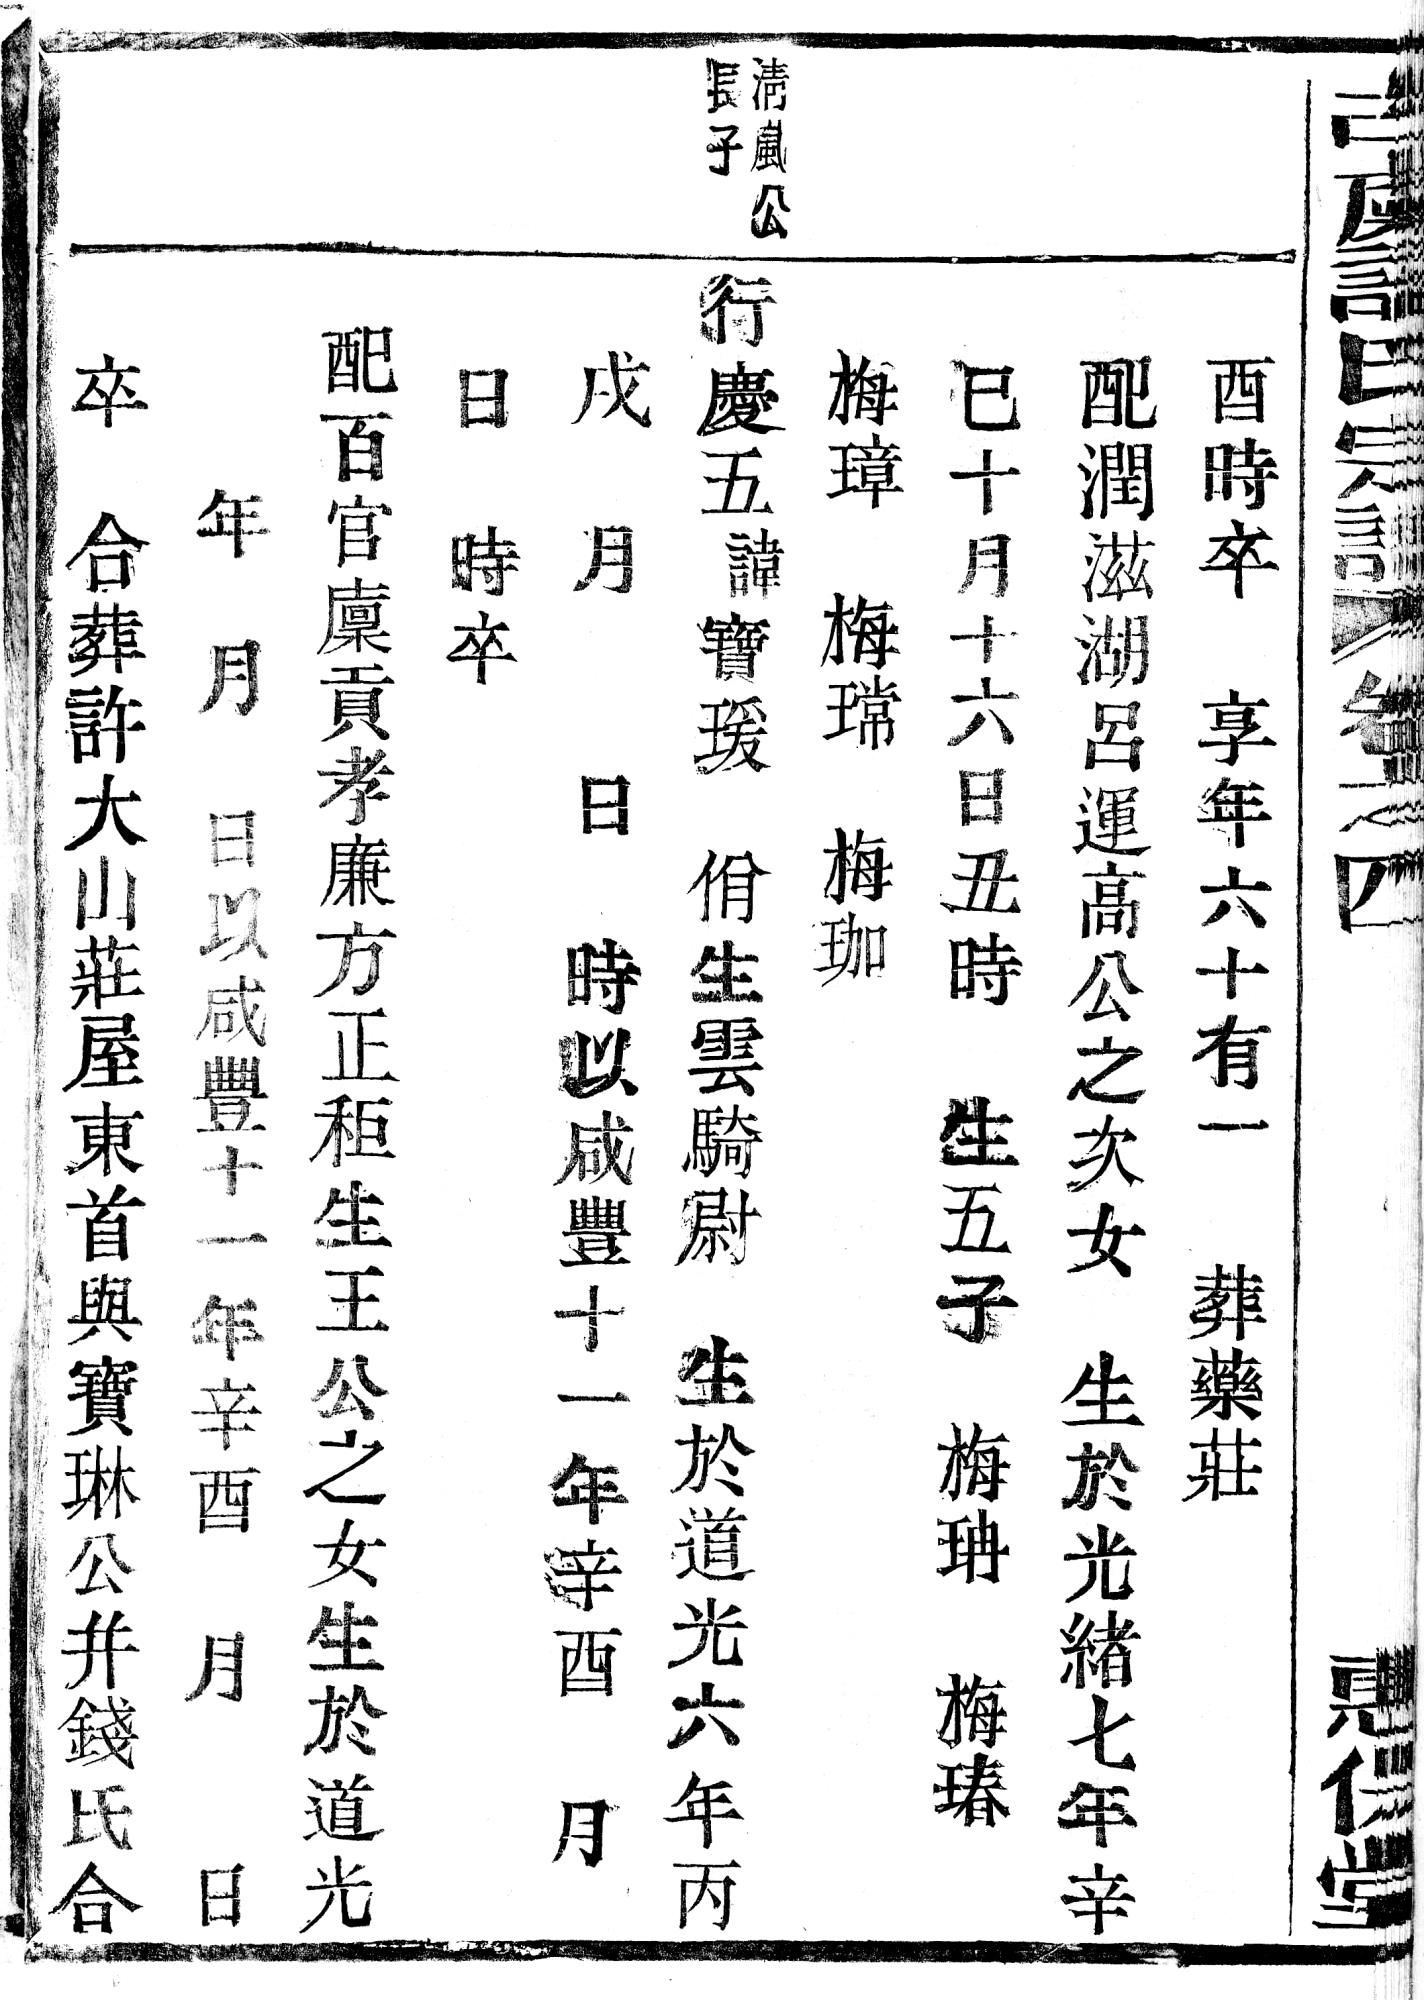 古虞許氏宗譜 卷之四 惠仁堂
酉時卒 享年六十有一 葬藥莊
配潤滋湖呂運高公之次女 生於光緒七年辛
巳十月十六日丑時 生五子 梅珃 梅瑃
梅璋 梅瑺 梅珈
清嵐公
長子
行慶五諱寶瑗 佾生雲騎尉 生於道光六年丙
戌 月 日 時以咸豐十一年辛酉 月
日 時卒
配百官廩貢孝廉方正秬生王公之女生於道光
年 月 日以咸豐十一年辛酉 月 日
卒 合葬許大山莊屋東首與寶琳公幷錢氏合